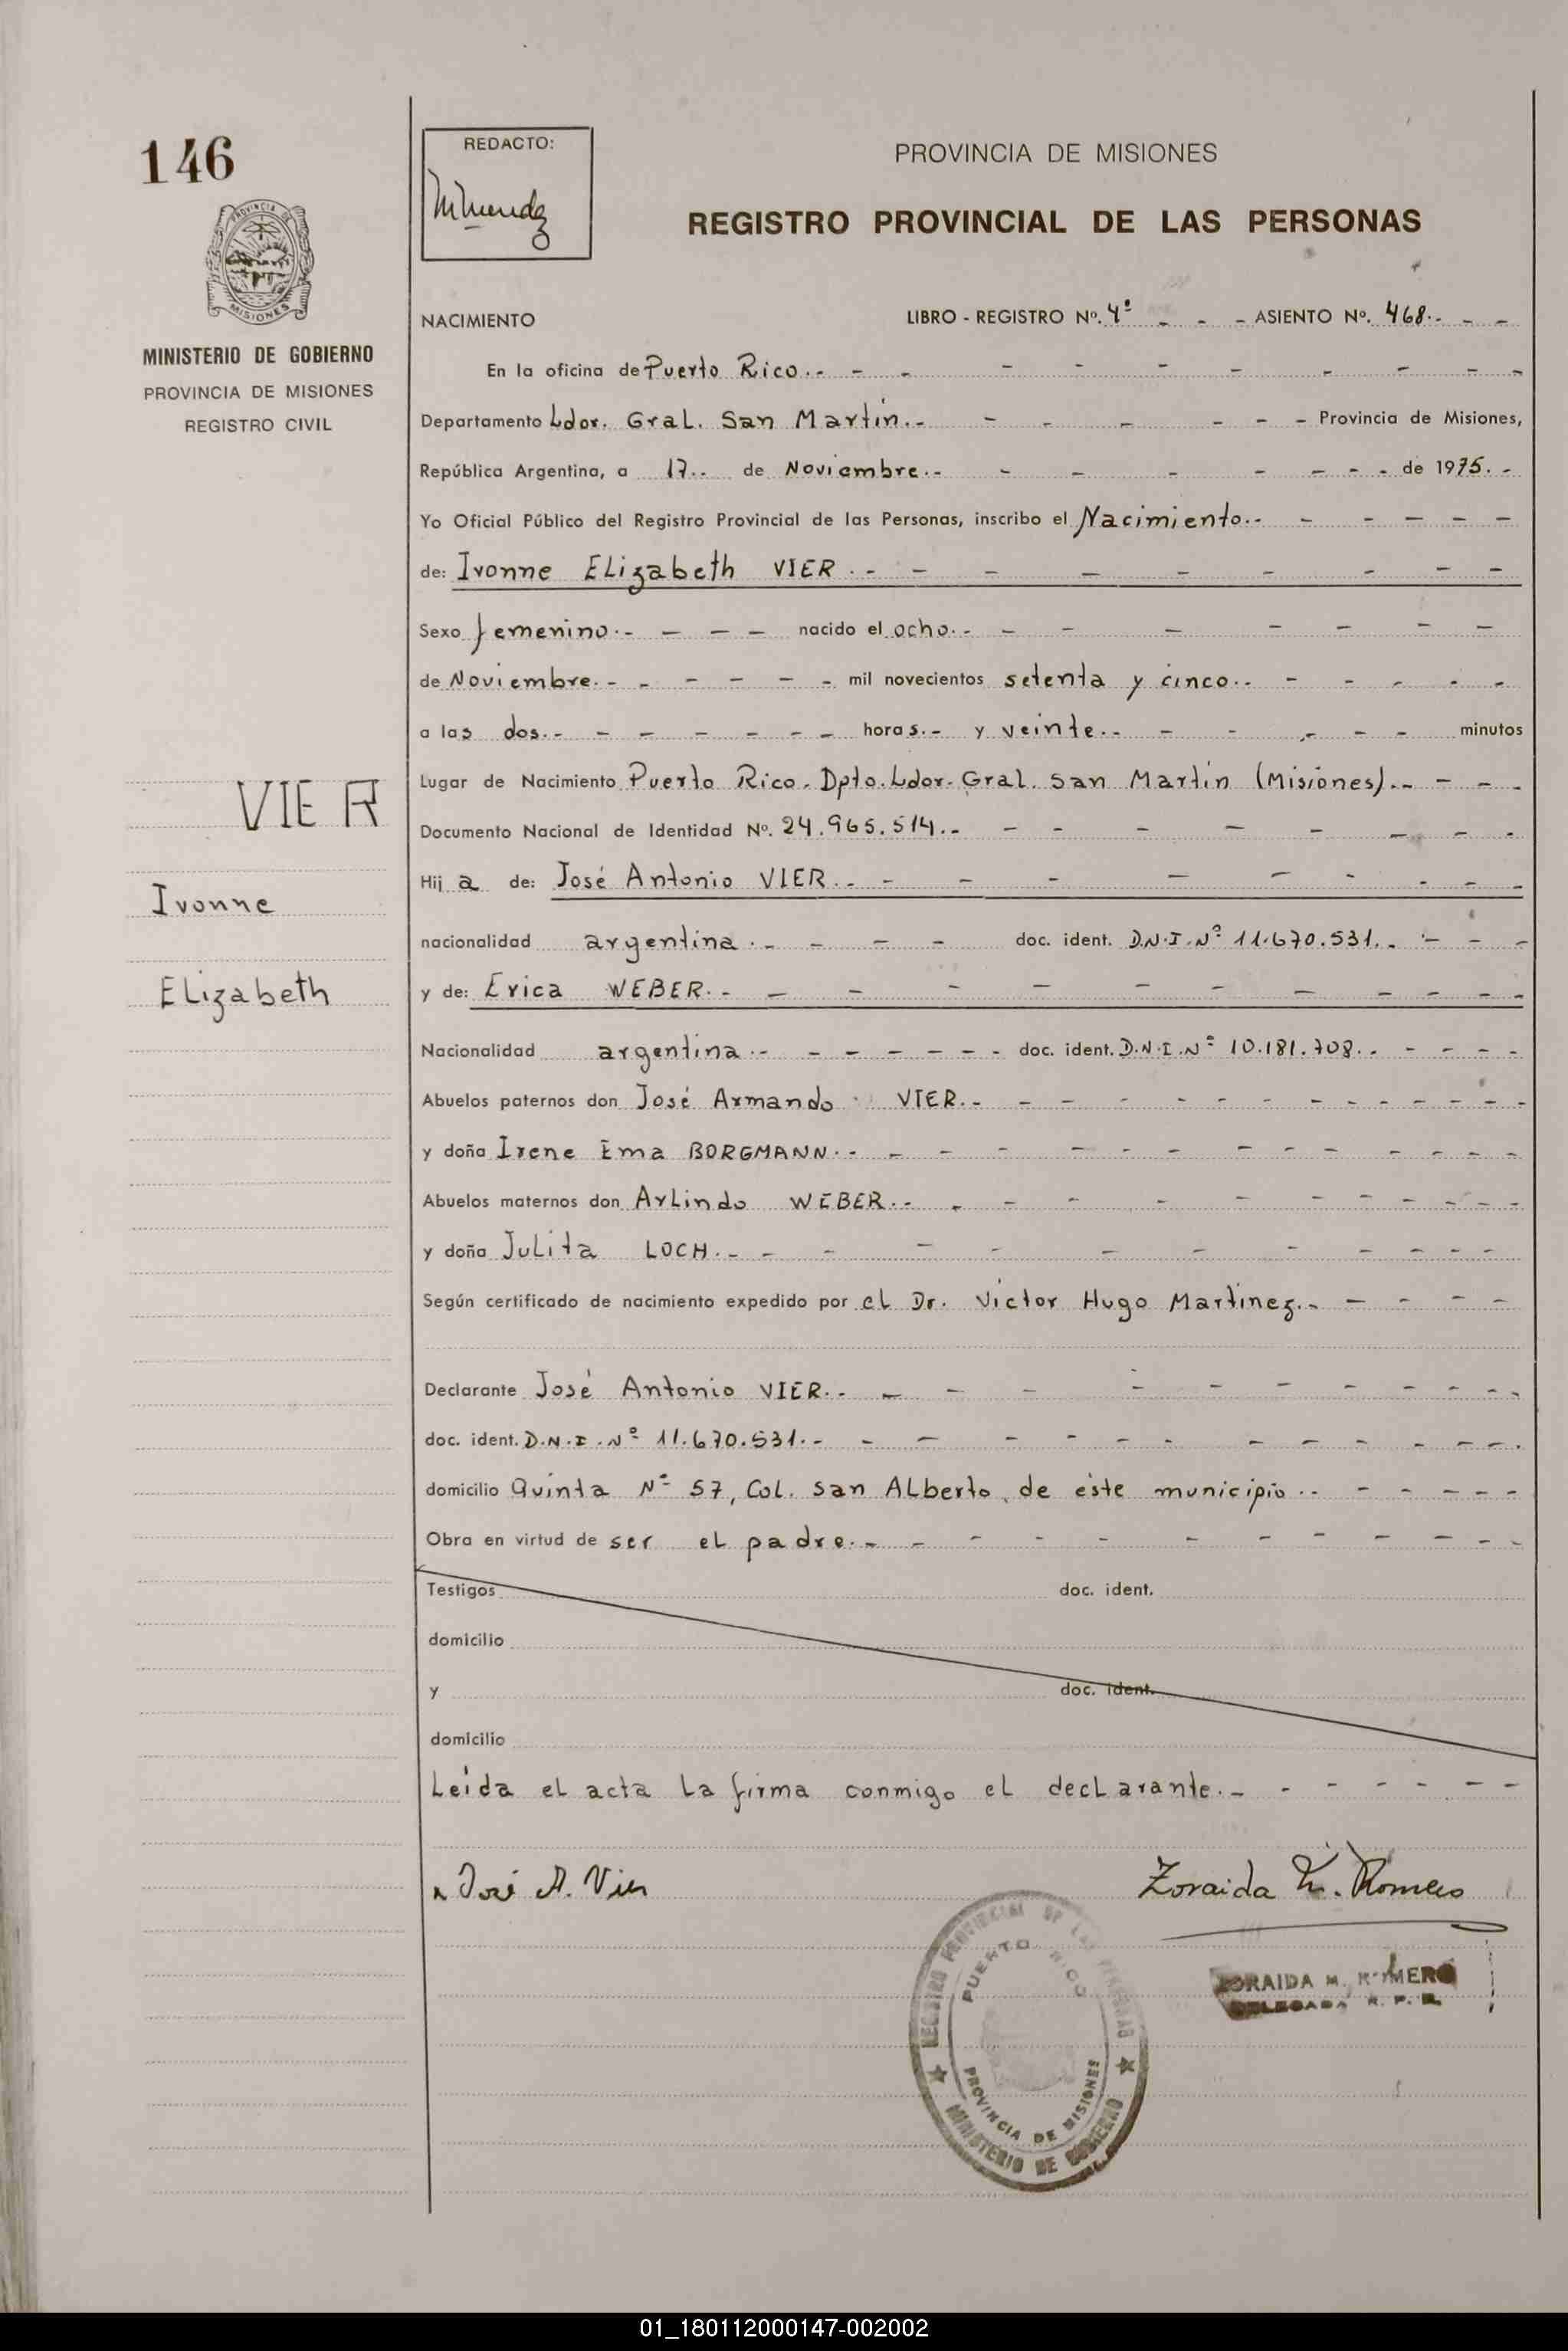 146
PROVINCIA DE
MISIONES
MINISTERIO DE GOBIERNO
PROVINCIA DE MISIONES
REGISTRO CIVIL
VIER
Ivonne
Elizabeth
REDACTO:
PROVINCIA DE MISIONES
REGISTRO PROVINCIAL DE LAS PERSONAS
NACIMIENTO LIBRO - REGISTRO Nº. 4º - - - ASIENTO Nº. 468.- - -
En la oficina de Puerto Rico.- - - - - - - - - - - -
Departamento Ldor. Gral. San Martín.- - - - - - - Provincia de Misiones,
República Argentina, a 17.. de Noviembre.- - - - - - - - de 1975. -
Yo Oficial Público del Registro Provincial de las Personas, inscribo el Nacimiento.- - - - - -
de: Ivonne Elizabeth VIER.- - - - - - - - - -
Sexo femenino.- - - - nacido el ocho.- - - - - - - -
de Noviembre.- - - - - - - mil novecientos setenta y cinco.. - - - - -
a las dos.- - - - - - - horas.- y veinte.. - - - - - minutos
Lugar de Nacimiento Puerto Rico. Dpto. Ldor. Gral. San Martín (Misiones).- - - -
Documento Nacional de Identidad Nº. 24.965.514.- - - - - - - - -
Hij a de: José Antonio VIER.- - - - - - - - - -
nacionalidad argentina.- - - - doc. ident. D.N.I. Nº 11.670.531.- - - -
y de: Erica WEBER.- - - - - - - - - - - -
Nacionalidad argentina.- - - - - - - doc. ident. D.N.I. Nº 10.181.708.. - - - -
Abuelos paternos don José Armando VIER.- - - - - - - - - - - - - -
y doña Irene Ema BORGMANN.- - - - - - - - - - - - - -
Abuelos maternos don Arlindo WEBER.- - - - - - - - - - - -
y doña Julita LOCH.- - - - - - - - - - - - -
Según certificado de nacimiento expedido por el Dr. Víctor Hugo Martínez.- - - - -
Declarante José Antonio VIER.- - - - - - - - - - - -
doc. ident. D.N.I. Nº 11.670.531.- - - - - - - - - - - - - -
domicilio Quinta Nº 57, Col. San Alberto, de éste municipio.. - - - - -
Obra en virtud de ser el padre.- - - - - - - - - - - -
Testigos doc. ident.
domicilio
y doc. ident.
domicilio
Leída el acta la firma conmigo el declarante.- - - - - - -
José A. Vier
Zoraida M. Romero
ZORAIDA M. ROMERO
DELEGADA R. P. P.
REGISTRO PROVINCIAL DE LAS PERSONAS
PUERTO RICO
PROVINCIA DE MISIONES
MINISTERIO DE GOBIERNO
01_180112000147-002002